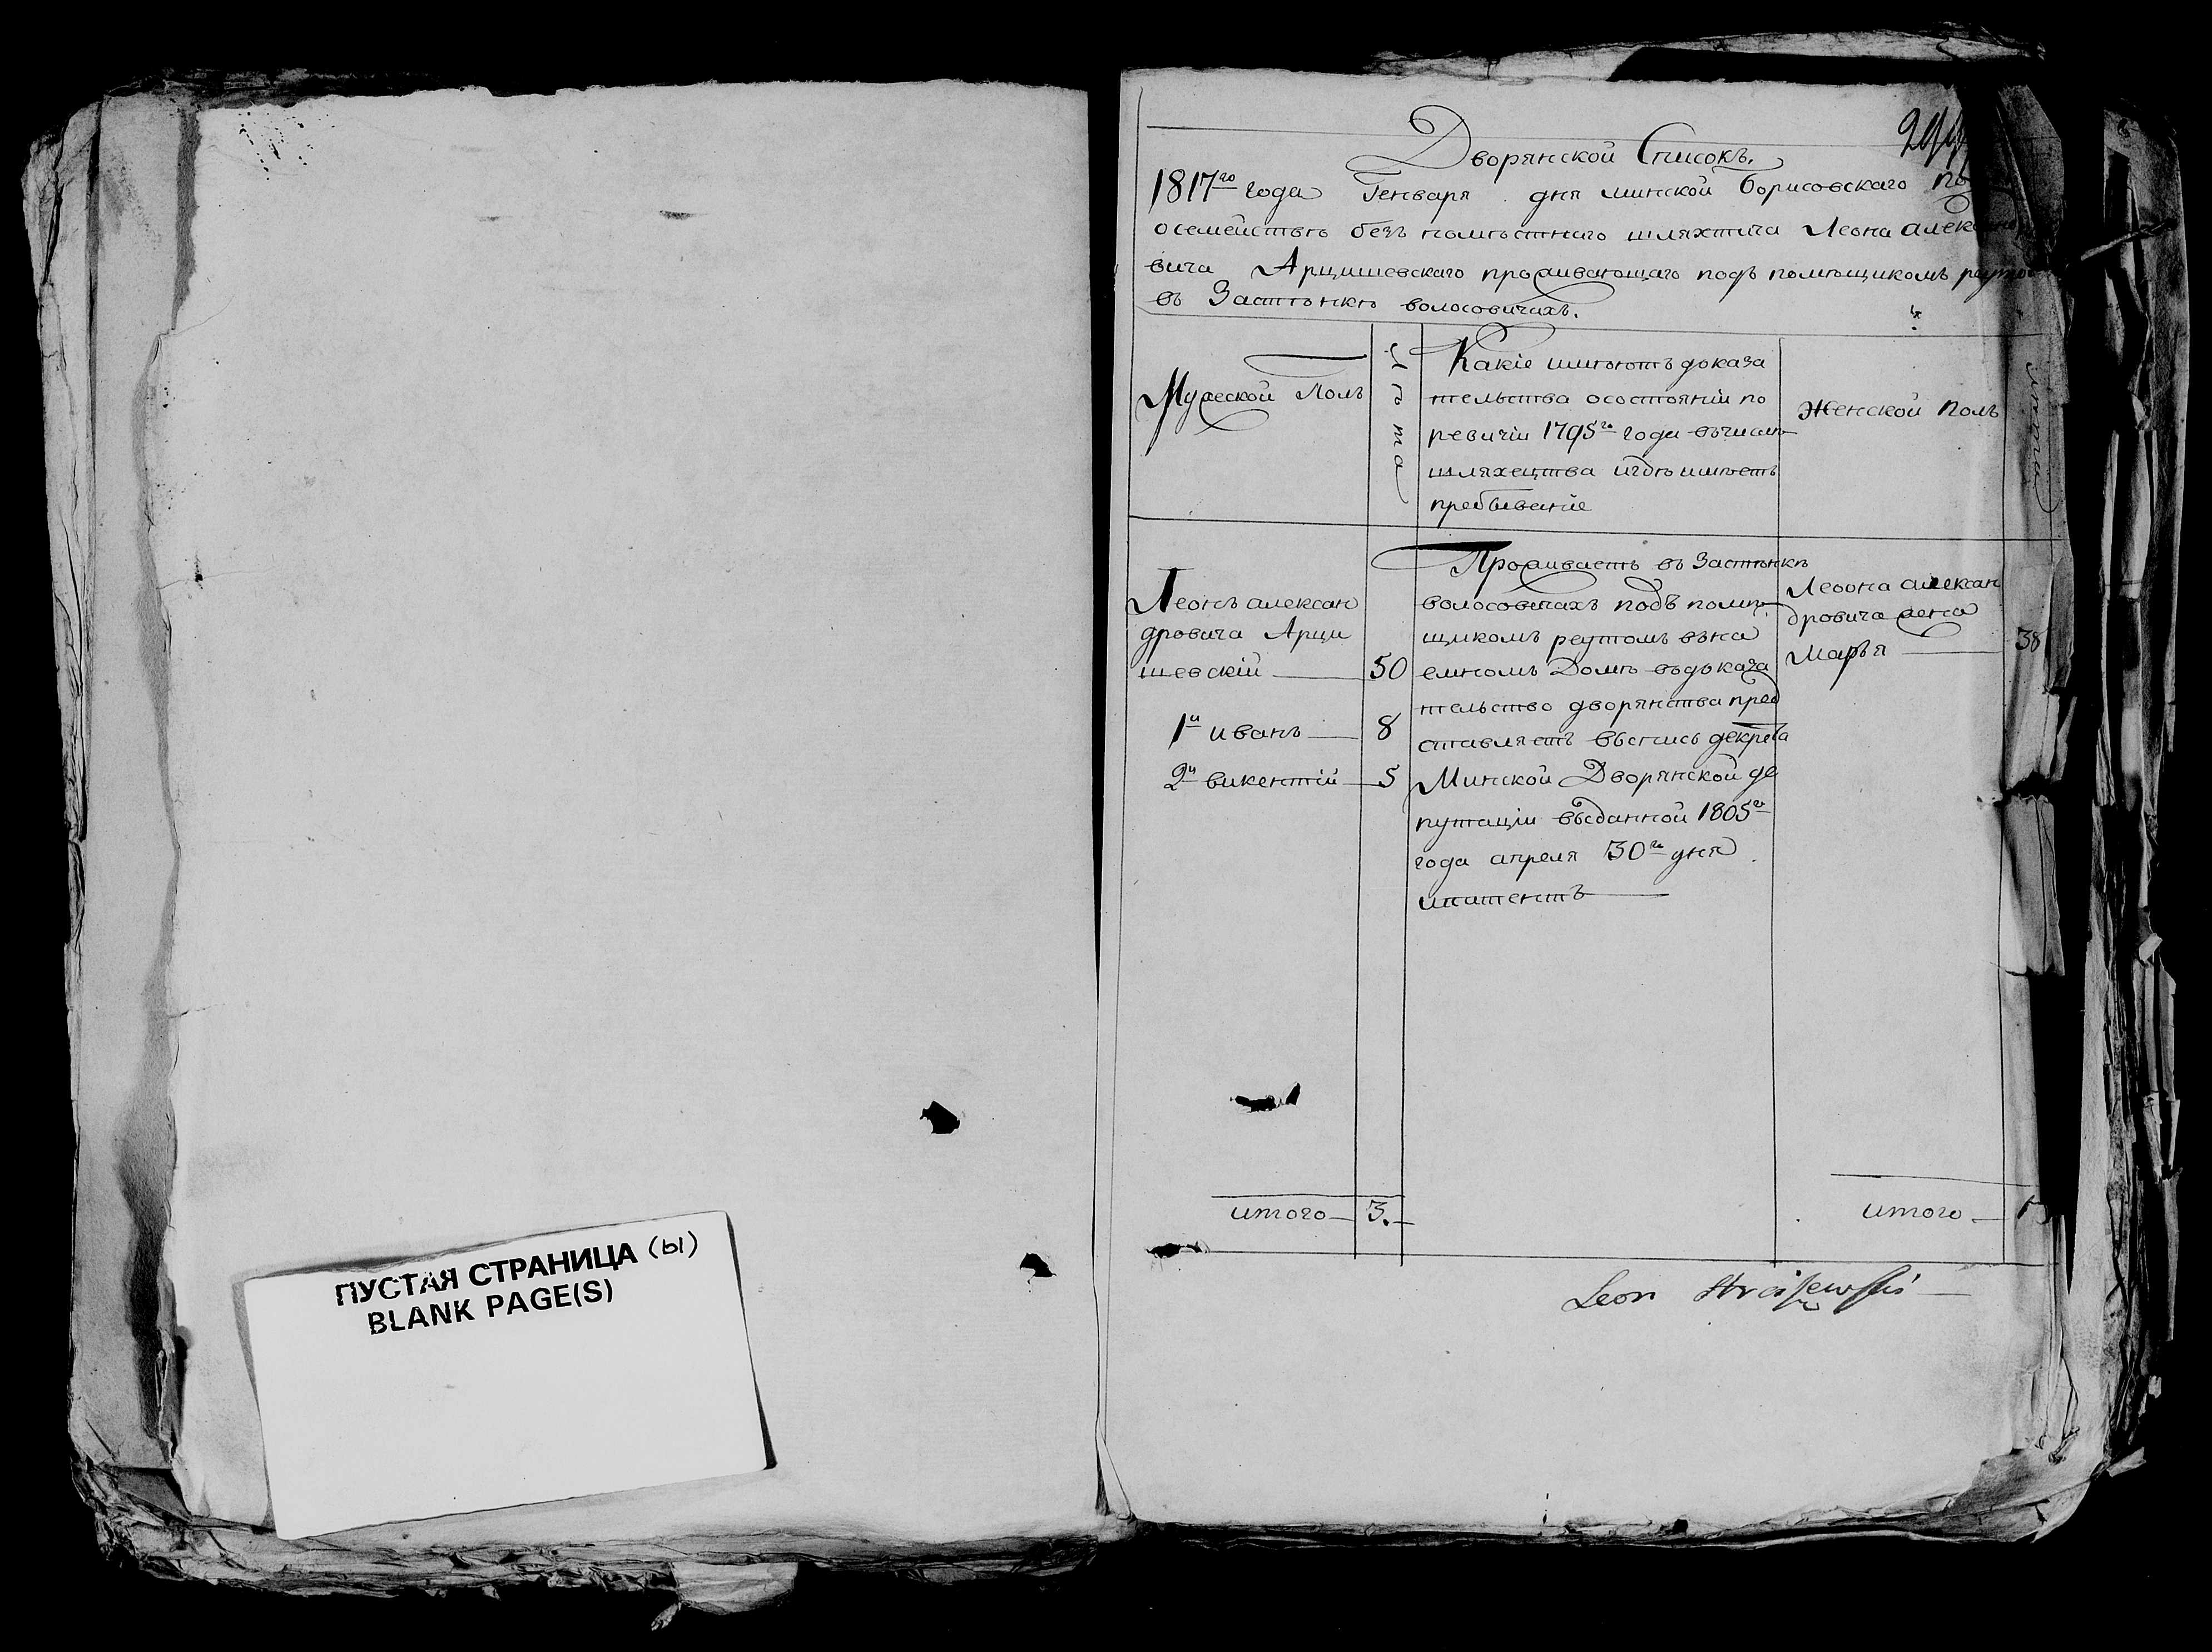 ПУСТАЯ СТРАНИЦА (ы)
BLANK PAGE(S)
Дворянской Списокъ.
1817го года Генваря дня минской борисовскаго
о семействѣ безъ помѣстнаго шляхтича Леона алекс
вича Арцишевскаго проживающаго подъ помѣщикомъ
въ Застѣнкѣ волосовичахъ.
Мужеской Полъ
Лѣта
Какіе имѣютъ доказа
тельства о состояніи по
ревизіи 1795го года въ числѣ
шляхецтва и гдѣ имѣетъ
пребываніе
Женской Полъ
лѣта
Леонъ алексан
дровича Арци
шевскій 50
1й иванъ 8
2й викентій 5
Проживаетъ въ Застѣнкѣ
волосовичахъ подъ помѣ
щикомъ реутомъ въ на
емномъ Домѣ въ доказа
тельство дворянства пред
ставляетъ выпись декрета
Минской Дворянской де
путаціи выданной 1805го
года апреля 30го дня
ипатентъ
Леона алексан
дровича жена
Марья 38
итого 3.
итого
Leon